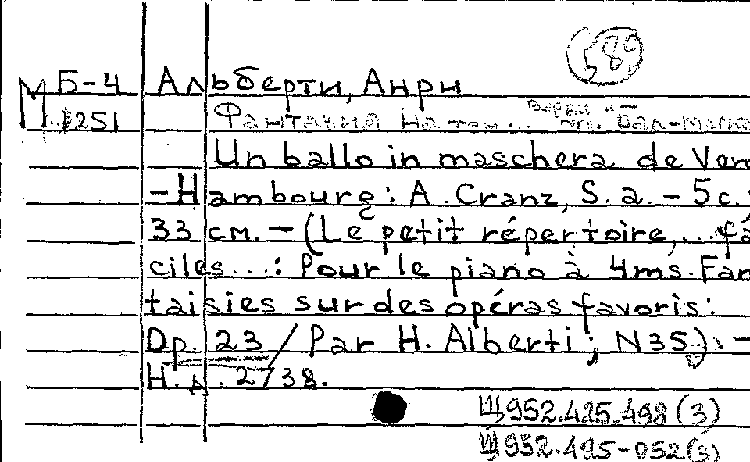 580
М Б-4 Альберти, Анри
1251 Фантазия на тем... Верди
оп. Бал-маска
Un ballo in maschera de Ver
-Hambourg: A. Cranz, S. a. - 5 с.
33 см. - (Le petit répertoire,... fá
ciles...: Pour le piano à 4ms. Fan
taisies sur des opéras favoris:
Op. 23 / Par H. Alberti; N35). -
Н.д. 2738.
Ш 952.425.498 (3)
Ш 952.495-052 (3)